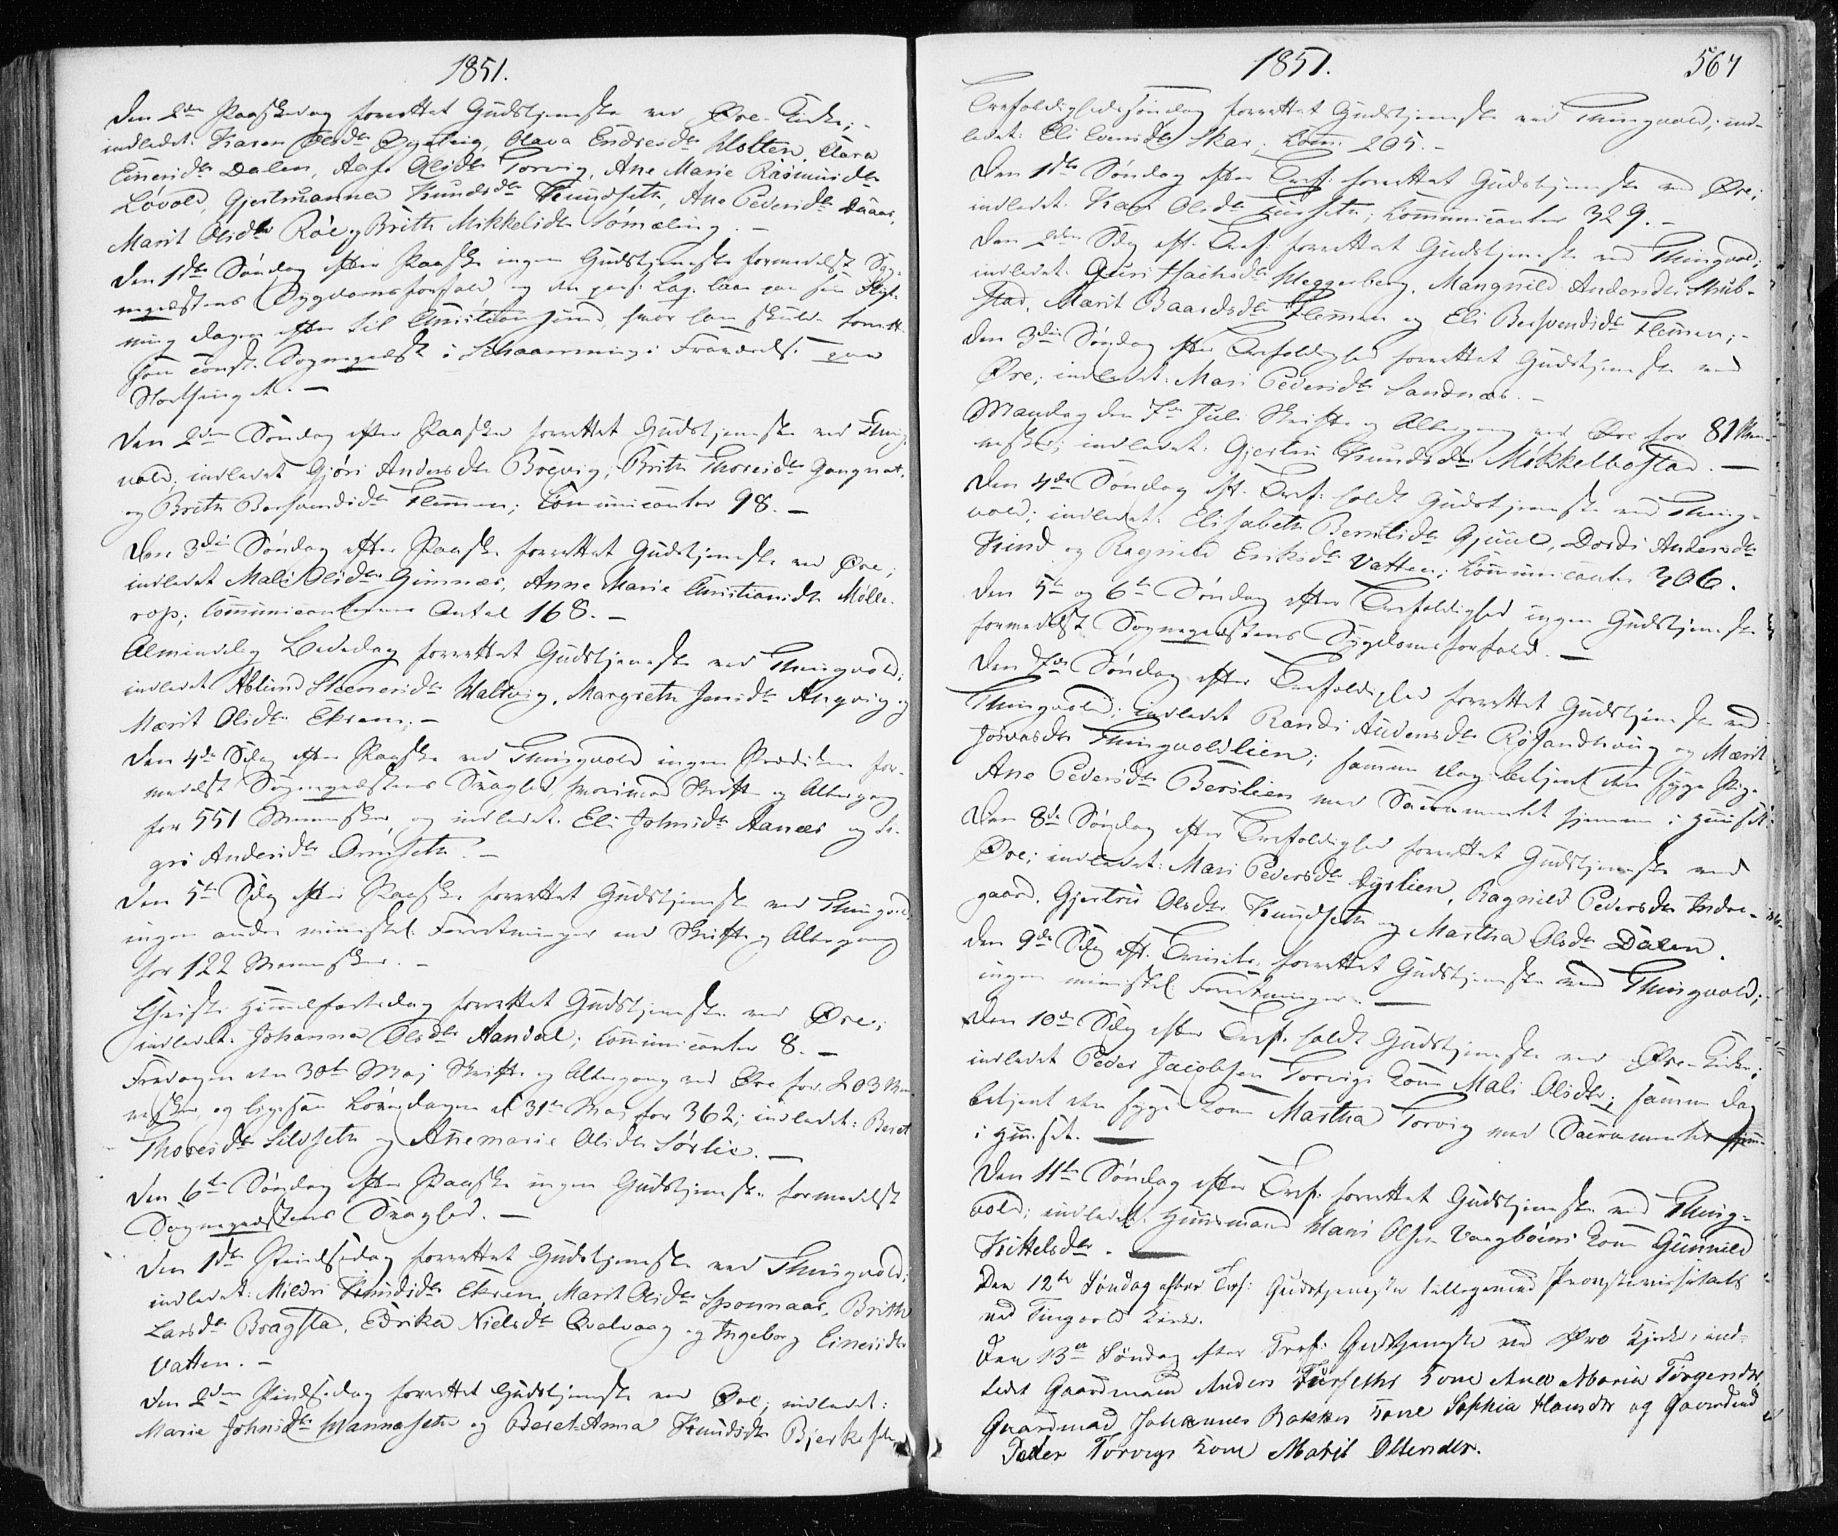 1851.
Den 2den Paaskedag forrettet Gudstjeneste ved Øre-Kirke;
indledet: Karen Olsdtr , Olava Endresdtr Klolten, Clara
Einersdtr Dalen, Olsdtr Torvig, Ane Marie Rasmusdtr
Løvold, Gjertruanna Knudsdtr Knudseth, Ane Pedersdtr
Marit Olsdtr Røe og Brith Mikkelsdtr Sømæling. –
Den 1ste Søndag efter Paaske ingen Gudstjeneste formedelst Sog-
nepræstens Sygdomsforfald og
ning dagen efter til Christiansund, hvor han skulde
som const. Sognepræst i
Storthinget. –
Den 2den Søndag efter Paaske forrettet Gudstjeneste ved Thing-
vold, indledet Gjøri Andersdtr Boevig, Brith Thoresdtr Gangnat,
og Brith Bersvendsdtr Flemmen; Communicanter 98. –
Den 3die Søndag efter Paaske forrettet Gudstjeneste ved Øre,
indledet Mali Olsdtr Gimnæs, Anne Marie Christiansdtr Mølle-
rop; Communicanternes Antal 168. –
Almindelig Bededag forrettet Gudstjeneste ved Thingvold;
indledet Ablund Steenersdtr Waltvig, Margrethe Jensdtr Angvig og
Marit Olsdtr Ekrem; –
Den 4de Sdg efter Paaske ved Thingvold ingen Prædiken for-
medelst Sognepræstens Svaghed, hvorimod Skrifte og Altergang
for 551 Mennesker, og indledet Eli Johnsdtr Aanæs og Si-
gri Andersdtr Ormseth. –
Den 5te Sdg efter Paaske forrettet Gudstjeneste ved Thingvold
ingen andre ministeri. Forretninger end Skrifte og Altergang
for 122 Mennesker. –
Christi Himmelfartsdag forrettet Gudstjeneste ved Øre;
indledet. Johanna Olsdtr Aandal; Communicanter 8. –
Fredagen den 30te Maj Skrifte og Altergang ved Øre for 203 Men-
nesker, og ligesaa Løverdagen d 31te Maj for 362; indledet: Beret
Thoresdtr Silseth og Anemarie Olsdtr Sørlie. –
Den 6te Søndag efter Paaske ingen Gudstjeneste formedelst
Sognepræstens Svaghed. –
Den 1ste Pindsedag forrettet Gudstjeneste ved Thingvold;
indledet: Mildri Knudsdtr Ekrem, Marit Olsdtr Sponnaas, Brith
Larsdtr Bragstad, Edrika Nielsdtr Qvalvaag og Ingeborg Einersdtr
Vatten. –
Den 2den Pindsedag forrettet Gudstjeneste ved Øre; indledet:
Marie Johnsdtr Mannseth og Beret Anna Knudsdtr
1851.
567
Trefoldighedssøndag forrettet Gudstjeneste ved Thingvold; ind-
ledet: Eli Evensdtr Skar; Com. 205. –
Den 1ste Søndag efter Tref: forrettet Gudstjeneste ved Øre;
indledet Kari Olsdtr Furseth; Communicanter 329. –
Den 2den Sdg eft. Tref. forrettet Gudstjeneste ved Thingvold;
indledet. Guri Meggerberg, Mangnild Andersdtr Skub-
stad, Marit Baardsdtr Flemmen og Eli Bersvendsdtr Flemmen; –
Den 3die Søndag efter Trefoldighed forrettet Gudstjeneste ved
Øre; indledet: Mari Pedersdtr Sandnæs. –
Mandag den 7de Juli Skrifte og Altergang ved Øre for 81 Men-
nesker, indledet. Gjertru Knudsdtr Mikkelbostad. –
Den 4de Søndag eft. Tref. holdt Gudstjeneste ved Thing-
vold; indledet. Elisabeth Berntsdtr Gjuul, Dordi Andersdtr
og Ragnild Eriksdtr Vatten; Communicanter 306.
Den 5te og 6te Søndag efter Trefoldighed ingen Gudstjeneste
formedelst Sognepræstens Sygdomsforfald. –
Den 7de Søndag efter Trefoldighed forrettet Gudstjeneste ved
Thingvold; indledet Randi Audensdtr Røsandhoug og Marit
Jonasdtr Thingvoldlien; samme Dag betjent den syge Pige
Ane Pedersdtr Berslien med Sacramentet hjemme i Huuset.
Den 8de Søndag efter Trefoldighed forrettet Gudstjeneste ved
Øre; indledet: Mari Pedersdtr Gyslien, Ragnild Pedersdtr Indre-
gaard, Gjertru Olsdtr Knudseth og Martha Olsdtr Dalen.
Den 9de Sdg eft. Trinit. forrettet Gudstjeneste ved Thingvold;
ingen ministeri Forretninger. –
Den 10de Sdg efter Tref. holdt Gudstjeneste ved Øre-Kirke;
indledet Peder Jacobsen Torvigs Kone Mali Olsdtr; samme Dag
betjent den syge Kone Martha Torvig med Sacramentet
i Huuset. –
Den 11te Søndag efter Tref. forrettet Gudstjeneste ved Thing-
vold; indledet. Huusmand Hans Olsen Vaagbøens Kone Gunnild
Kittelsdtr. –
Den 12te Søndag efter Tref: Gudstjeneste tilligemed Provstevisitats
ved Tingvold Kirke.
Den 13de Søndag efter Tref: Gudstjeneste ved Øre Kjerke; ind-
ledet Gaardmand Anders Furseths Kone Ane Maria Torgersdtr,
Gaardmand Johannes Bakkes Kone Sophia Hansdtr og Gaardmd
Peder Torvigs Kone Marit Ellensdtr.